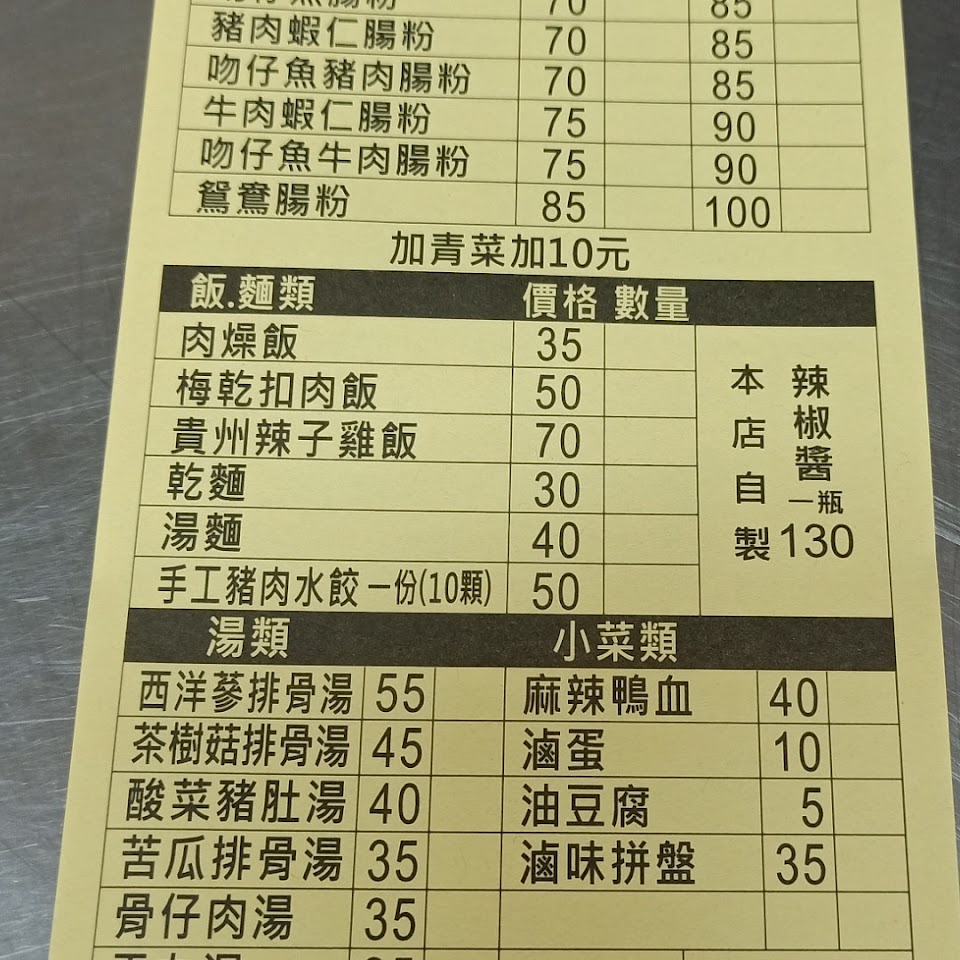 70 85
豬肉蝦仁腸粉 70 85
吻仔魚豬肉腸粉 70 85
牛肉蝦仁腸粉 75 90
吻仔魚牛肉腸粉 75 90
鴛鴦腸粉 85 100
加青菜加10元
飯.麵類 價格 數量
肉燥飯 35
梅乾扣肉飯 50
貴州辣子雞飯 70
乾麵 30
湯麵 40
手工豬肉水餃一份(10顆) 50
本店自製
辣椒醬一瓶130
湯類
西洋蔘排骨湯 55
茶樹菇排骨湯 45
酸菜豬肚湯 40
苦瓜排骨湯 35
骨仔肉湯 35
小菜類
麻辣鴨血 40
滷蛋 10
油豆腐 5
滷味拼盤 35